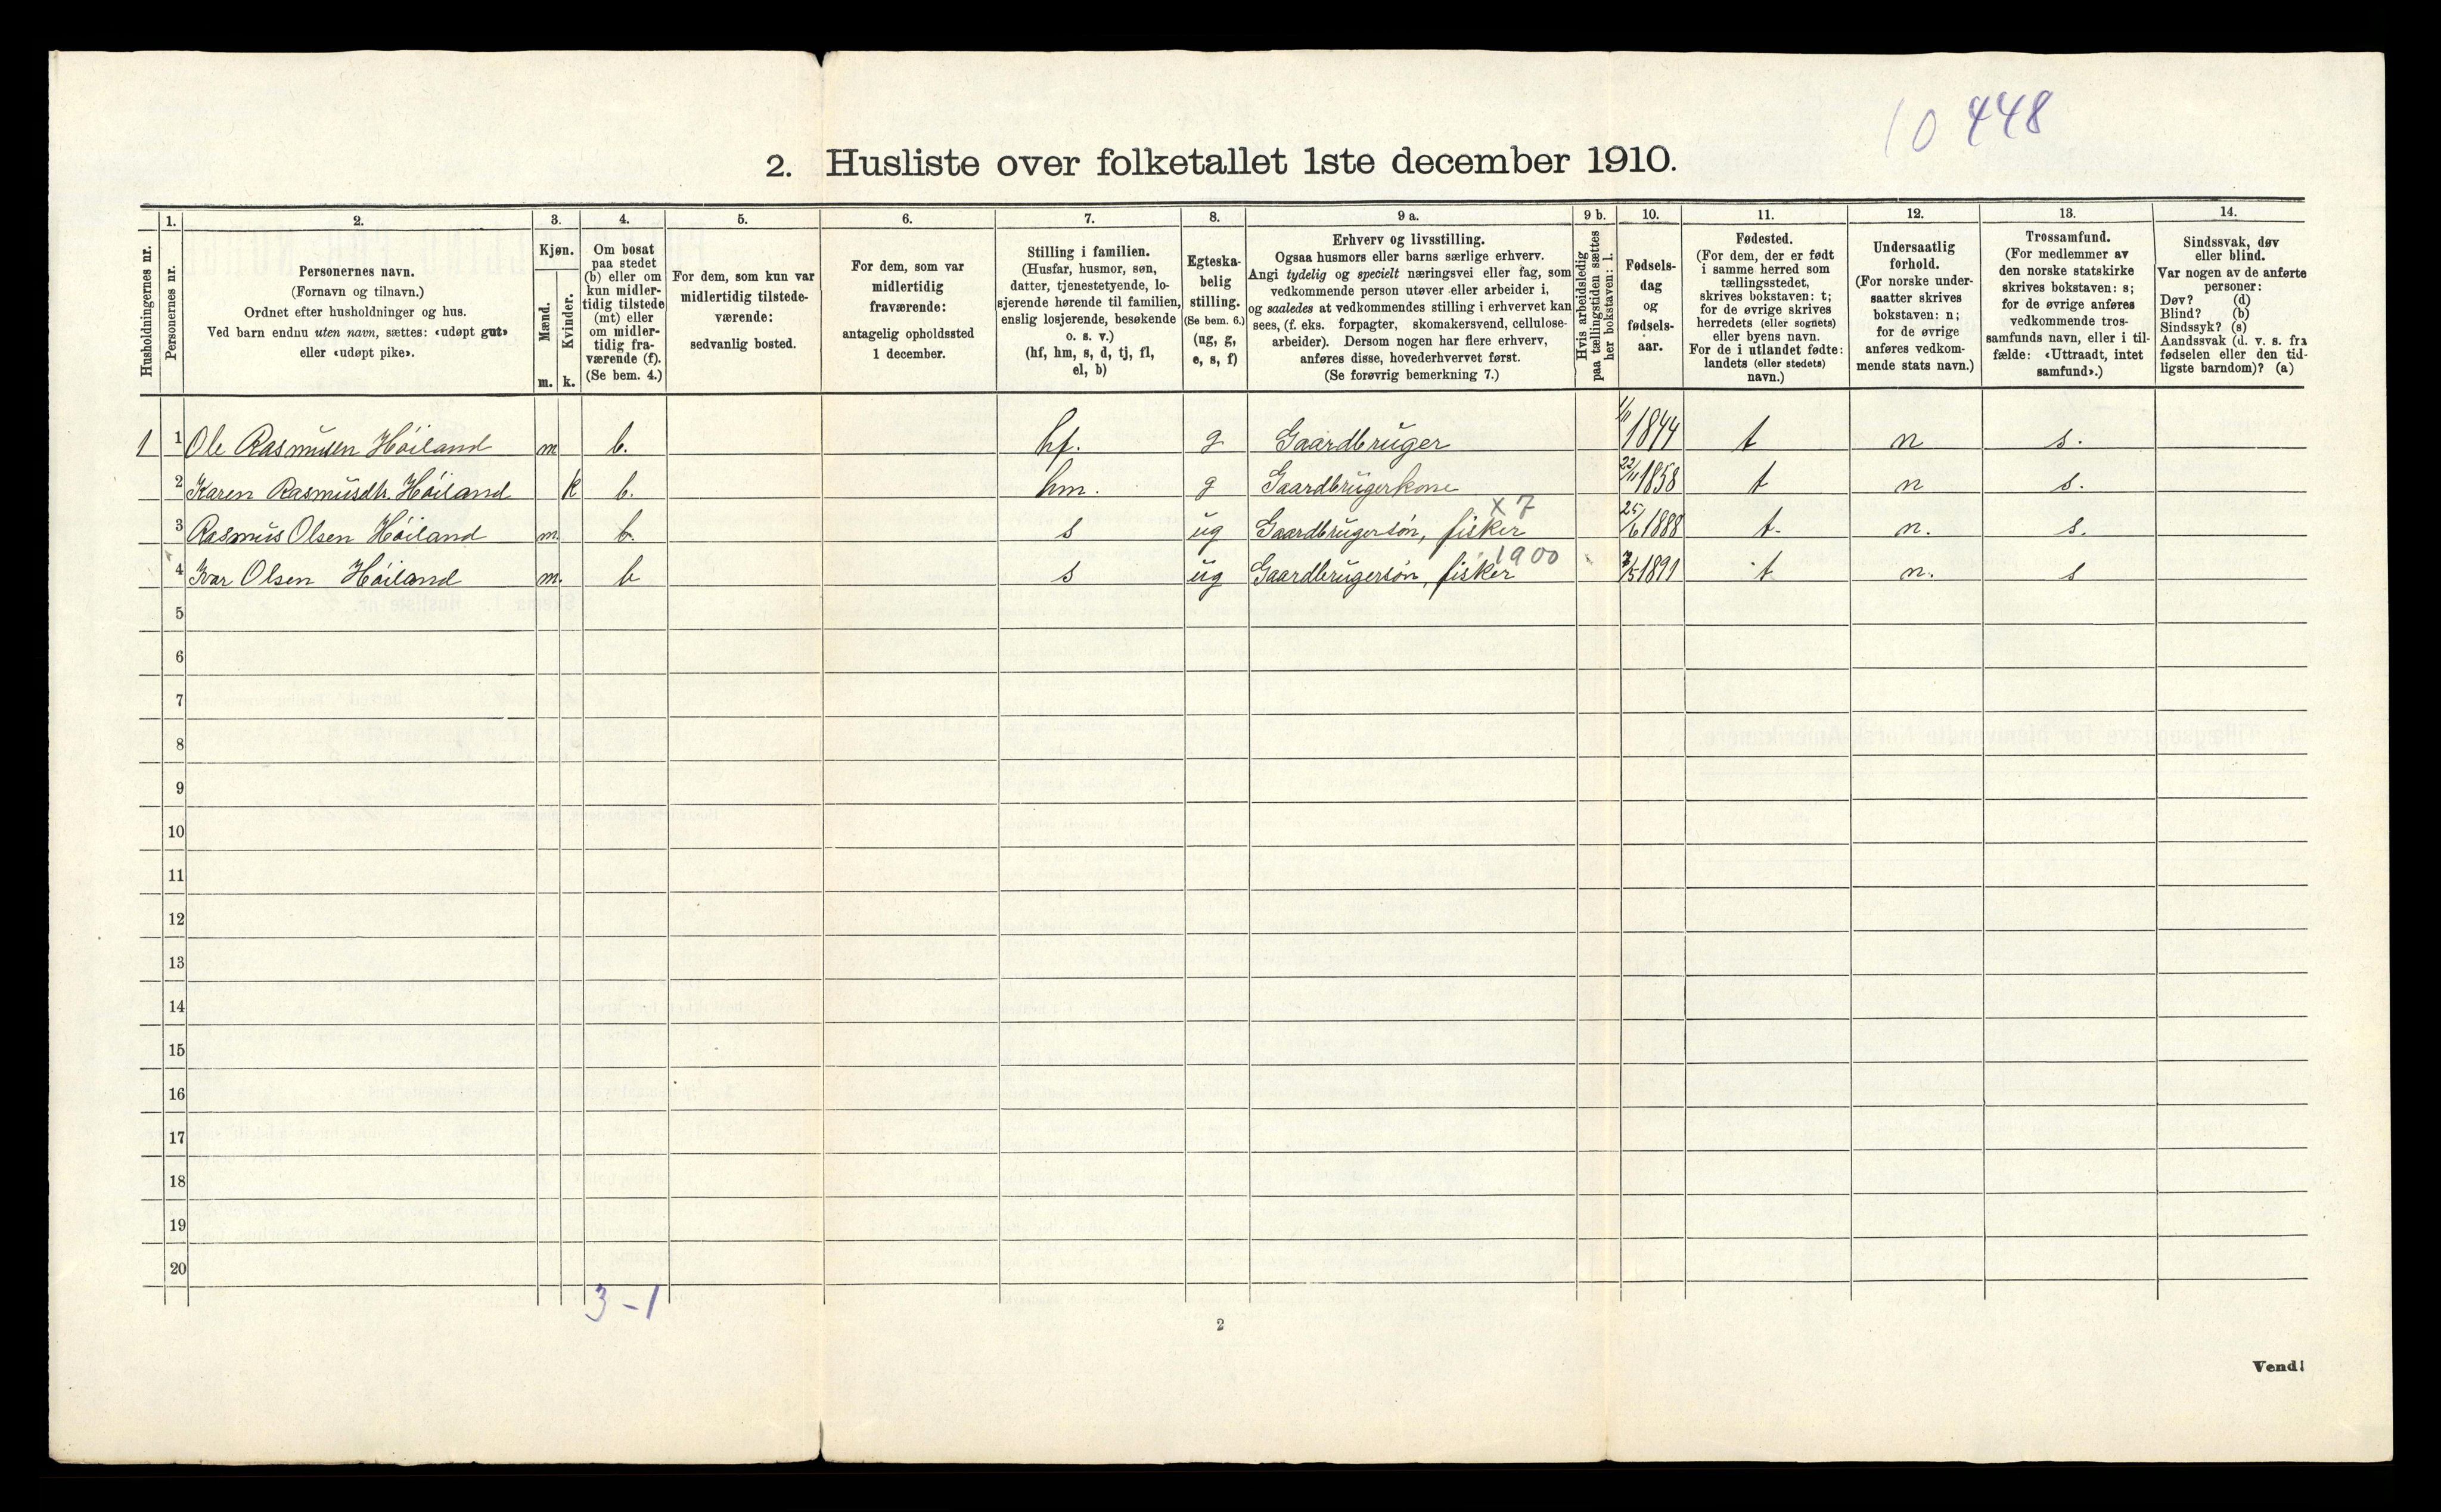 10 448
2. Husliste over folketallet 1ste december 1910.
Husholdningernes nr.
1.
Personernes nr.
2.
Personernes navn.
(Fornavn og tilnavn.)
Ordnet efter husholdninger og hus.
Ved barn endnu uten navn, sættes: «udøpt gut»
eller «udøpt pike».
3.
Kjøn.
Mænd.
Kvinder.
m. k.
4.
Om bosat
paa stedet
(b) eller om
kun midler-
tidig tilstede
(mt) eller
om midler-
tidig fra-
værende (f).
(Se bem. 4.)
5.
For dem, som kun var
midlertidig tilstede-
værende:
sedvanlig bosted.
6.
For dem, som var
midlertidig
fraværende:
antagelig opholdssted
1 december.
7.
Stilling i familien.
(Husfar, husmor, søn,
datter, tjenestetyende, lo-
sjerende hørende til familien,
enslig losjerende, besøkende
o. s. v.)
(hf, hm, s, d, tj, fl,
el, b)
8.
Egteska-
belig
stilling.
(Se bem. 6.)
(ug, g,
e, s, f)
9 a.
Erhverv og livsstilling.
Ogsaa husmors eller barns særlige erhverv.
Angi tydelig og specielt næringsvei eller fag, som
vedkommende person utøver eller arbeider i,
og saaledes at vedkommendes stilling i erhvervet kan
sees, (f. eks. forpagter, skomakersvend, cellulose-
arbeider). Dersom nogen har flere erhverv,
anføres disse, hovederhvervet først.
(Se forøvrig bemerkning 7.)
9 b.
Hvis arbeidsledig
paa tællingstiden sættes
her bokstaven: l.
10.
Fødsels-
dag
og
fødsels-
aar.
11.
Fødested.
(For dem, der er født
i samme herred som
tællingsstedet,
skrives bokstaven: t;
for de øvrige skrives
herredets (eller sognets)
eller byens navn.
For de i utlandet fødte:
landets (eller stedets)
navn.)
12.
Undersaatlig
forhold.
(For norske under-
saatter skrives
bokstaven: n;
for de øvrige
anføres vedkom-
mende stats navn.)
13.
Trossamfund.
(For medlemmer av
den norske statskirke
skrives bokstaven: s;
for de øvrige anføres
vedkommende tros-
samfunds navn, eller i til-
fælde: «Uttraadt, intet
samfund».)
14.
Sindssvak, døv
eller blind.
Var nogen av de anførte
personer:
Døv? (d)
Blind? (b)
Sindssyk? (s)
Aandssvak (d. v. s. fra
fødselen eller den tid-
ligste barndom)? (a)
1 1 Ole Rasmussen Høiland m b. hf. g Gaardbruger 1/11 1844 t n s.
2 Karen Rasmusdtr. Høiland k b. hm. g Gaardbrugerkone 22/11 1858 t n s.
x 7
3 Rasmus Olsen Høiland m b. s ug Gaardbrugersøn, fisker 25/6 1888 t. n. s.
1900
4 Ivar Olsen Høiland m. b s ug Gaardbrugersøn, fisker /5 1891 t n. s
5
6
7
8
9
10
11
12
13
14
15
16
17
18
19
20
3 - 1
2
Vend!